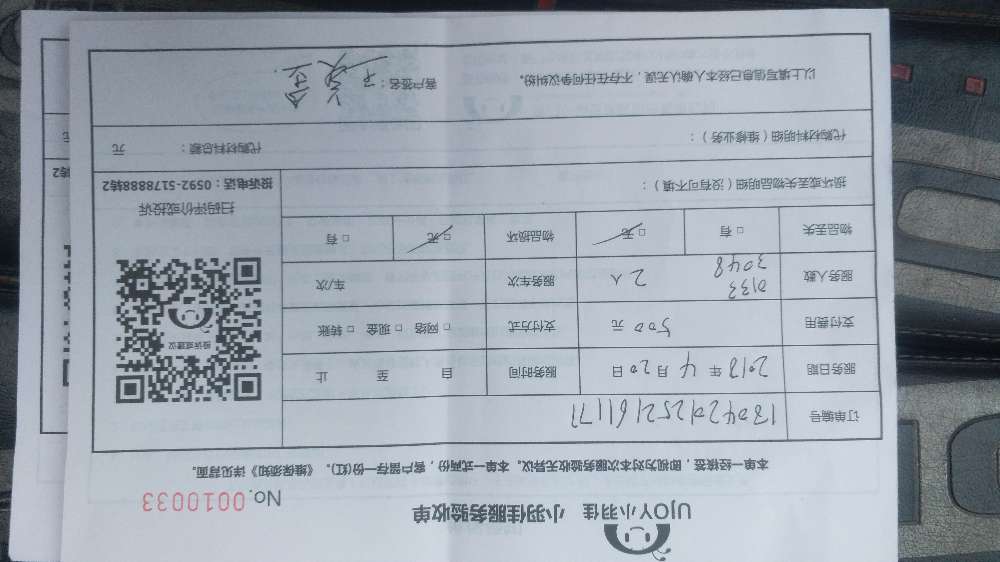 UJOY小羽佳 小羽佳服务验收单
No.0010033
本单一经核签，即视为对本次服务验收无异议。本单一式两份，客户留存一份(红)。《维保须知》详见背面。
订单编号
服务日期 2018 年 4 月 20 日 服务时间 自 至 止
支付费用 500 元 支付方式 □ 网络 □ 现金 □ 转账
服务人数 0133 3048 2人 服务车次 车/次
物品丢失 □ 有 □ 无 物品损坏 □ 无 □ 有
损坏或丢失物品明细（没有可不填）：
投诉或建议
扫码评价或投诉
投诉电话：0592-5178888转2
代购材料明细（维修业务）： 代购材料总额： 元
以上填写信息已经本人确认无误，不存在任何争议纠纷。 客户签名：